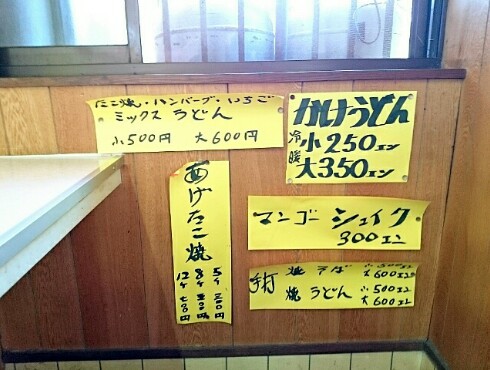 たこ焼・ハンバーグ・いちご
ミックスうどん
小500円 大600円
かけうどん
冷 小250エン
暖 大350エン
あげたこ焼
5ケ
8ケ
12ケ
マンゴーシェイク
300エン
手打
焼そば
大600エン
焼うどん 小500エン
大600エン